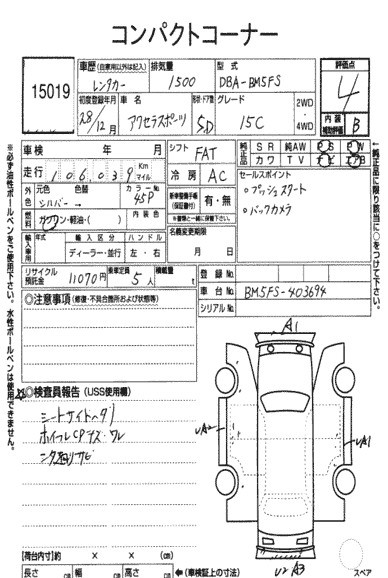 コンパクトコーナー
15019
車歴(自家用以外は記入) 排気量 型式
レンタカー 1500 DBA-BM5FS
初度登録年月 車名 ボディ・ドア数 グレード
28/12月 アクセラスポーツ 5D 15C 2WD・4WD
評価点
4
内装補助評価 B
車検 年 月
走行 106039 Km マイル
シフト FAT
冷房 AC
純正品 SR 純AW PS PW
カワ TV ナビ エアB
外色 元色 色替 カラーNo.
シルバー → 45P
燃料 ガソリン・軽油・( ) 内装色
新車整備手帳(保証書付) 有・無
※書類と一緒に保管下さい。
セールスポイント
○プッシュスタート
○バックカメラ
輸入車用 年式 輸入区分 ハンドル
ディーラー・並行 左・右
名義変更期限
月 日
リサイクル預託金 11070円 乗車定員 5人 積載量 t
登録No.
車台No. BM5FS-403694
シリアルNo.
◎注意事項(修復・不具合箇所および状態等)
◎検査員報告(USS使用欄)
シートサイドヘタリ
ホイールCPキズ・ワレ
A1
UA2
UA1
U2 A3
[荷台内寸]約 × × (cm)
長さ cm 幅 cm 高さ cm ←(車検証上の寸法)
スペア
※必ず油性ボールペンをご使用下さい。水性ボールペンは使用できません。
純正品に限り該当に○をつけて下さい。